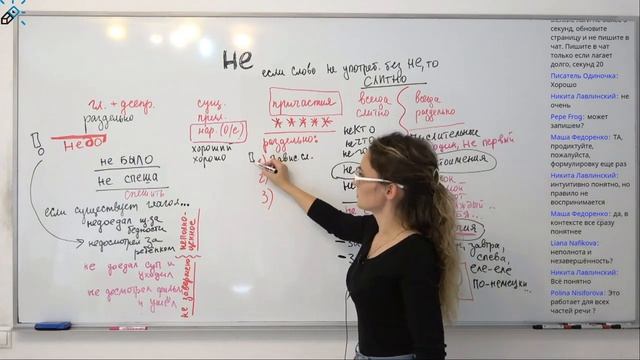 не если слово не употреб. без не, то
слитно
гл. + деепр.
раздельно
недо
не было
не спеша
спешить
если существует глагол...
недоедал из-за
бедности
недосмотрел за
ребёнком
неполно-
ценное
не доедал суп и
уходил
не досмотрел фильм
и ушёл
не завершено
сущ.
прил.
нар. (о/е)
хороший
хорошо
причастия
*****
раздельно:
1) завис. сл.
2)
3)
всегда
слитно
всегда
раздельно
некто
нечто
числительные
не первый
завтра,
слева,
еле-еле
по-немецки...
секунд, обновите
страницу и не пишите в
чат. Пишите в чат
только если лагает
долго, секунд 20
Писатель Одиночка: Хорошо
Никита Лавлинский: не очень
Pepe Frog: может
запишем?
Маша Федоренко: ТА,
продиктуйте,
пожалуйста,
формулировку еще раз
Никита Лавлинский:
интуитивно понятно, но
правило не
воспринимается
Маша Федоренко: да, в
контексте все сразу
понятнее
Liana Nafikova:
неполнота и
незавершённость?
Никита Лавлинский:
Всё понятно
Polina Nisiforova: Это
работает для всех
частей речи ?